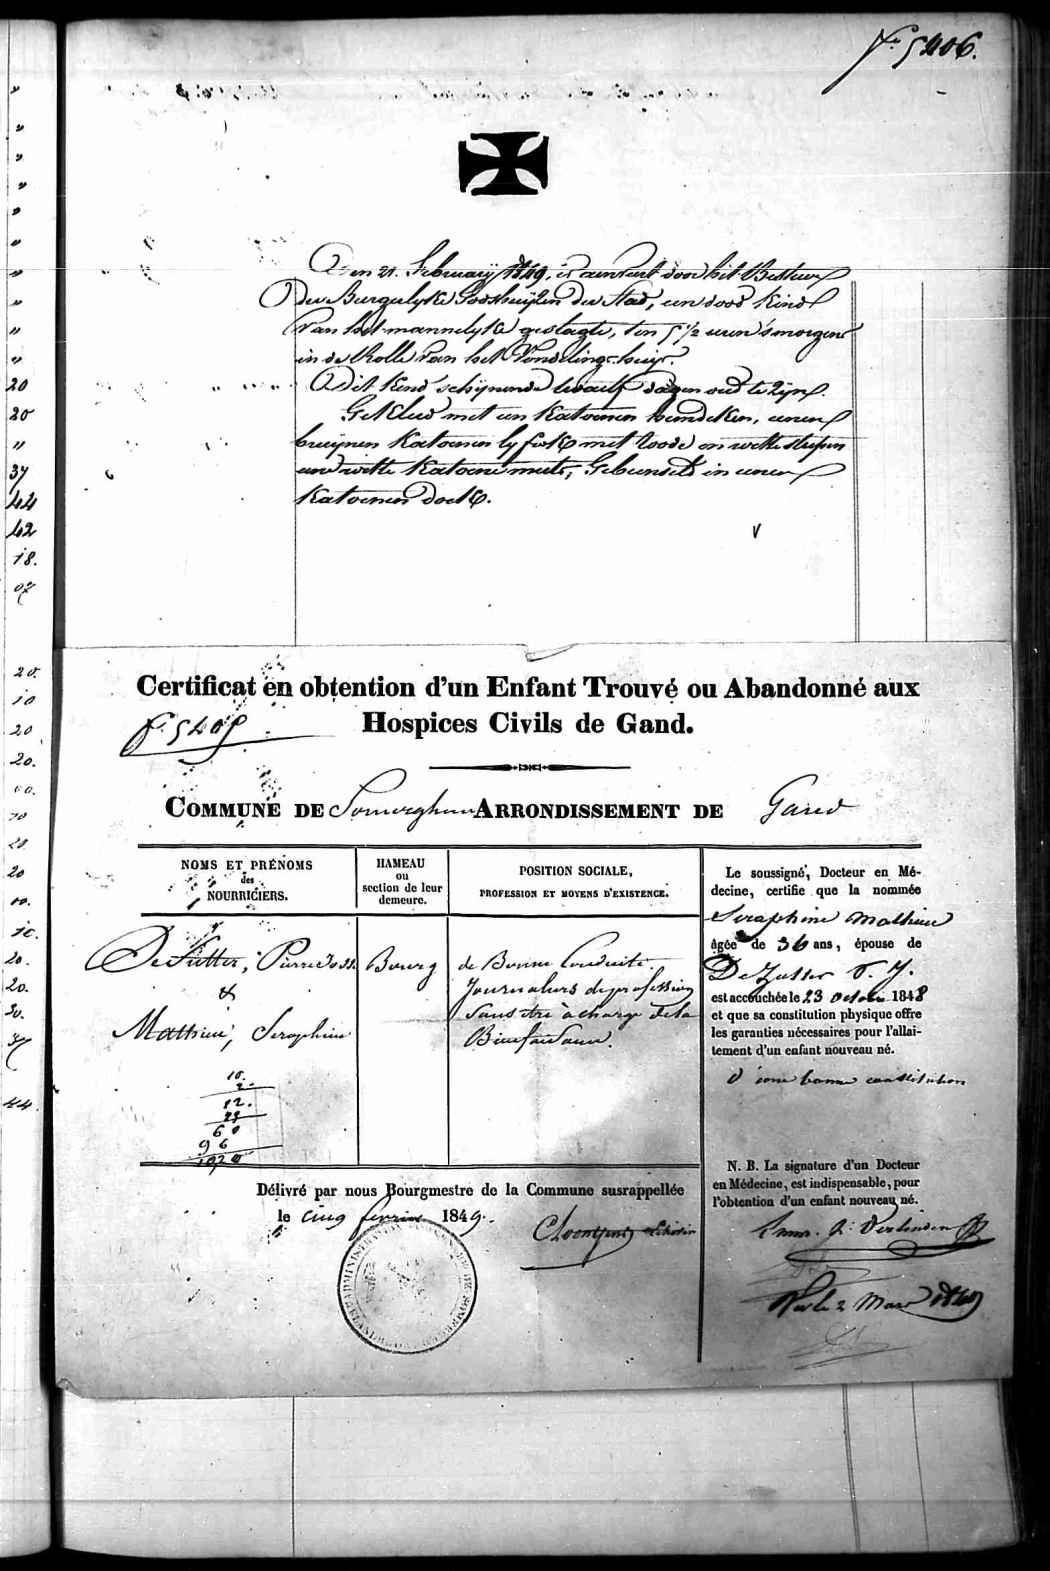 f° 5406.
Den 21. February 1849, is aenvaert door het Bestuer
Der Burgerlyke Godshuijzen der Stad, een dood kind
Van het mannelyk geslagte, ten 5 1/2 uren 's morgens
in de Rolle van het Vondelinge-huijs.
Dit kind schijnende twaelf dagen oud te zijn.
Gekleed met een katoenen hemdeken, eenen
bruijnen katoenen lyfrok met roode en witte strepen
eene witte katoene muts, Gebunseld in eenen
katoenen doek.
20
20
"
37
44
42
18.
07
20.
10
20
20.
20
20.
20
20.
20.
44.
Certificat en obtention d'un Enfant Trouvé ou Abandonné aux
Hospices Civils de Gand.
f. 5405
COMMUNE DE Somerghem ARRONDISSEMENT DE Gand
NOMS ET PRÉNOMS
des
NOURRICIERS.
HAMEAU
ou
section de leur
demeure.
POSITION SOCIALE,
PROFESSION ET MOYENS D'EXISTENCE.
De Sutter, Pierre Jos.
&
Mathieu, Seraphine
Bourg
de Bonne Conduite.
Journaliers de profession
Sans être à charge de la
Bienfaisance.
10.
2.
12.
23
60
96
1920
Le soussigné, Docteur en Mé-
decine, certifie que la nommée
Seraphine Mathieu
âgée de 36 ans, épouse de
De Zutter P. J.
est accouchée le 23 octobre 1848
et que sa constitution physique offre
les garanties nécessaires pour l'allai-
tement d'un enfant nouveau né.
d'une bonne constitution
N. B. La signature d'un Docteur
en Médecine, est indispensable, pour
l'obtention d'un enfant nouveau né.
Délivré par nous Bourgmestre de la Commune susrappellée
le cinq fevrier 1849.
Vu le 2 Mars 1849